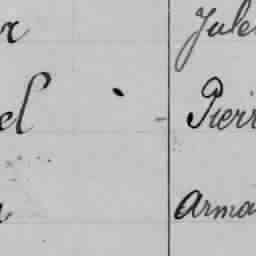 r Jule
el Pierr
Arma